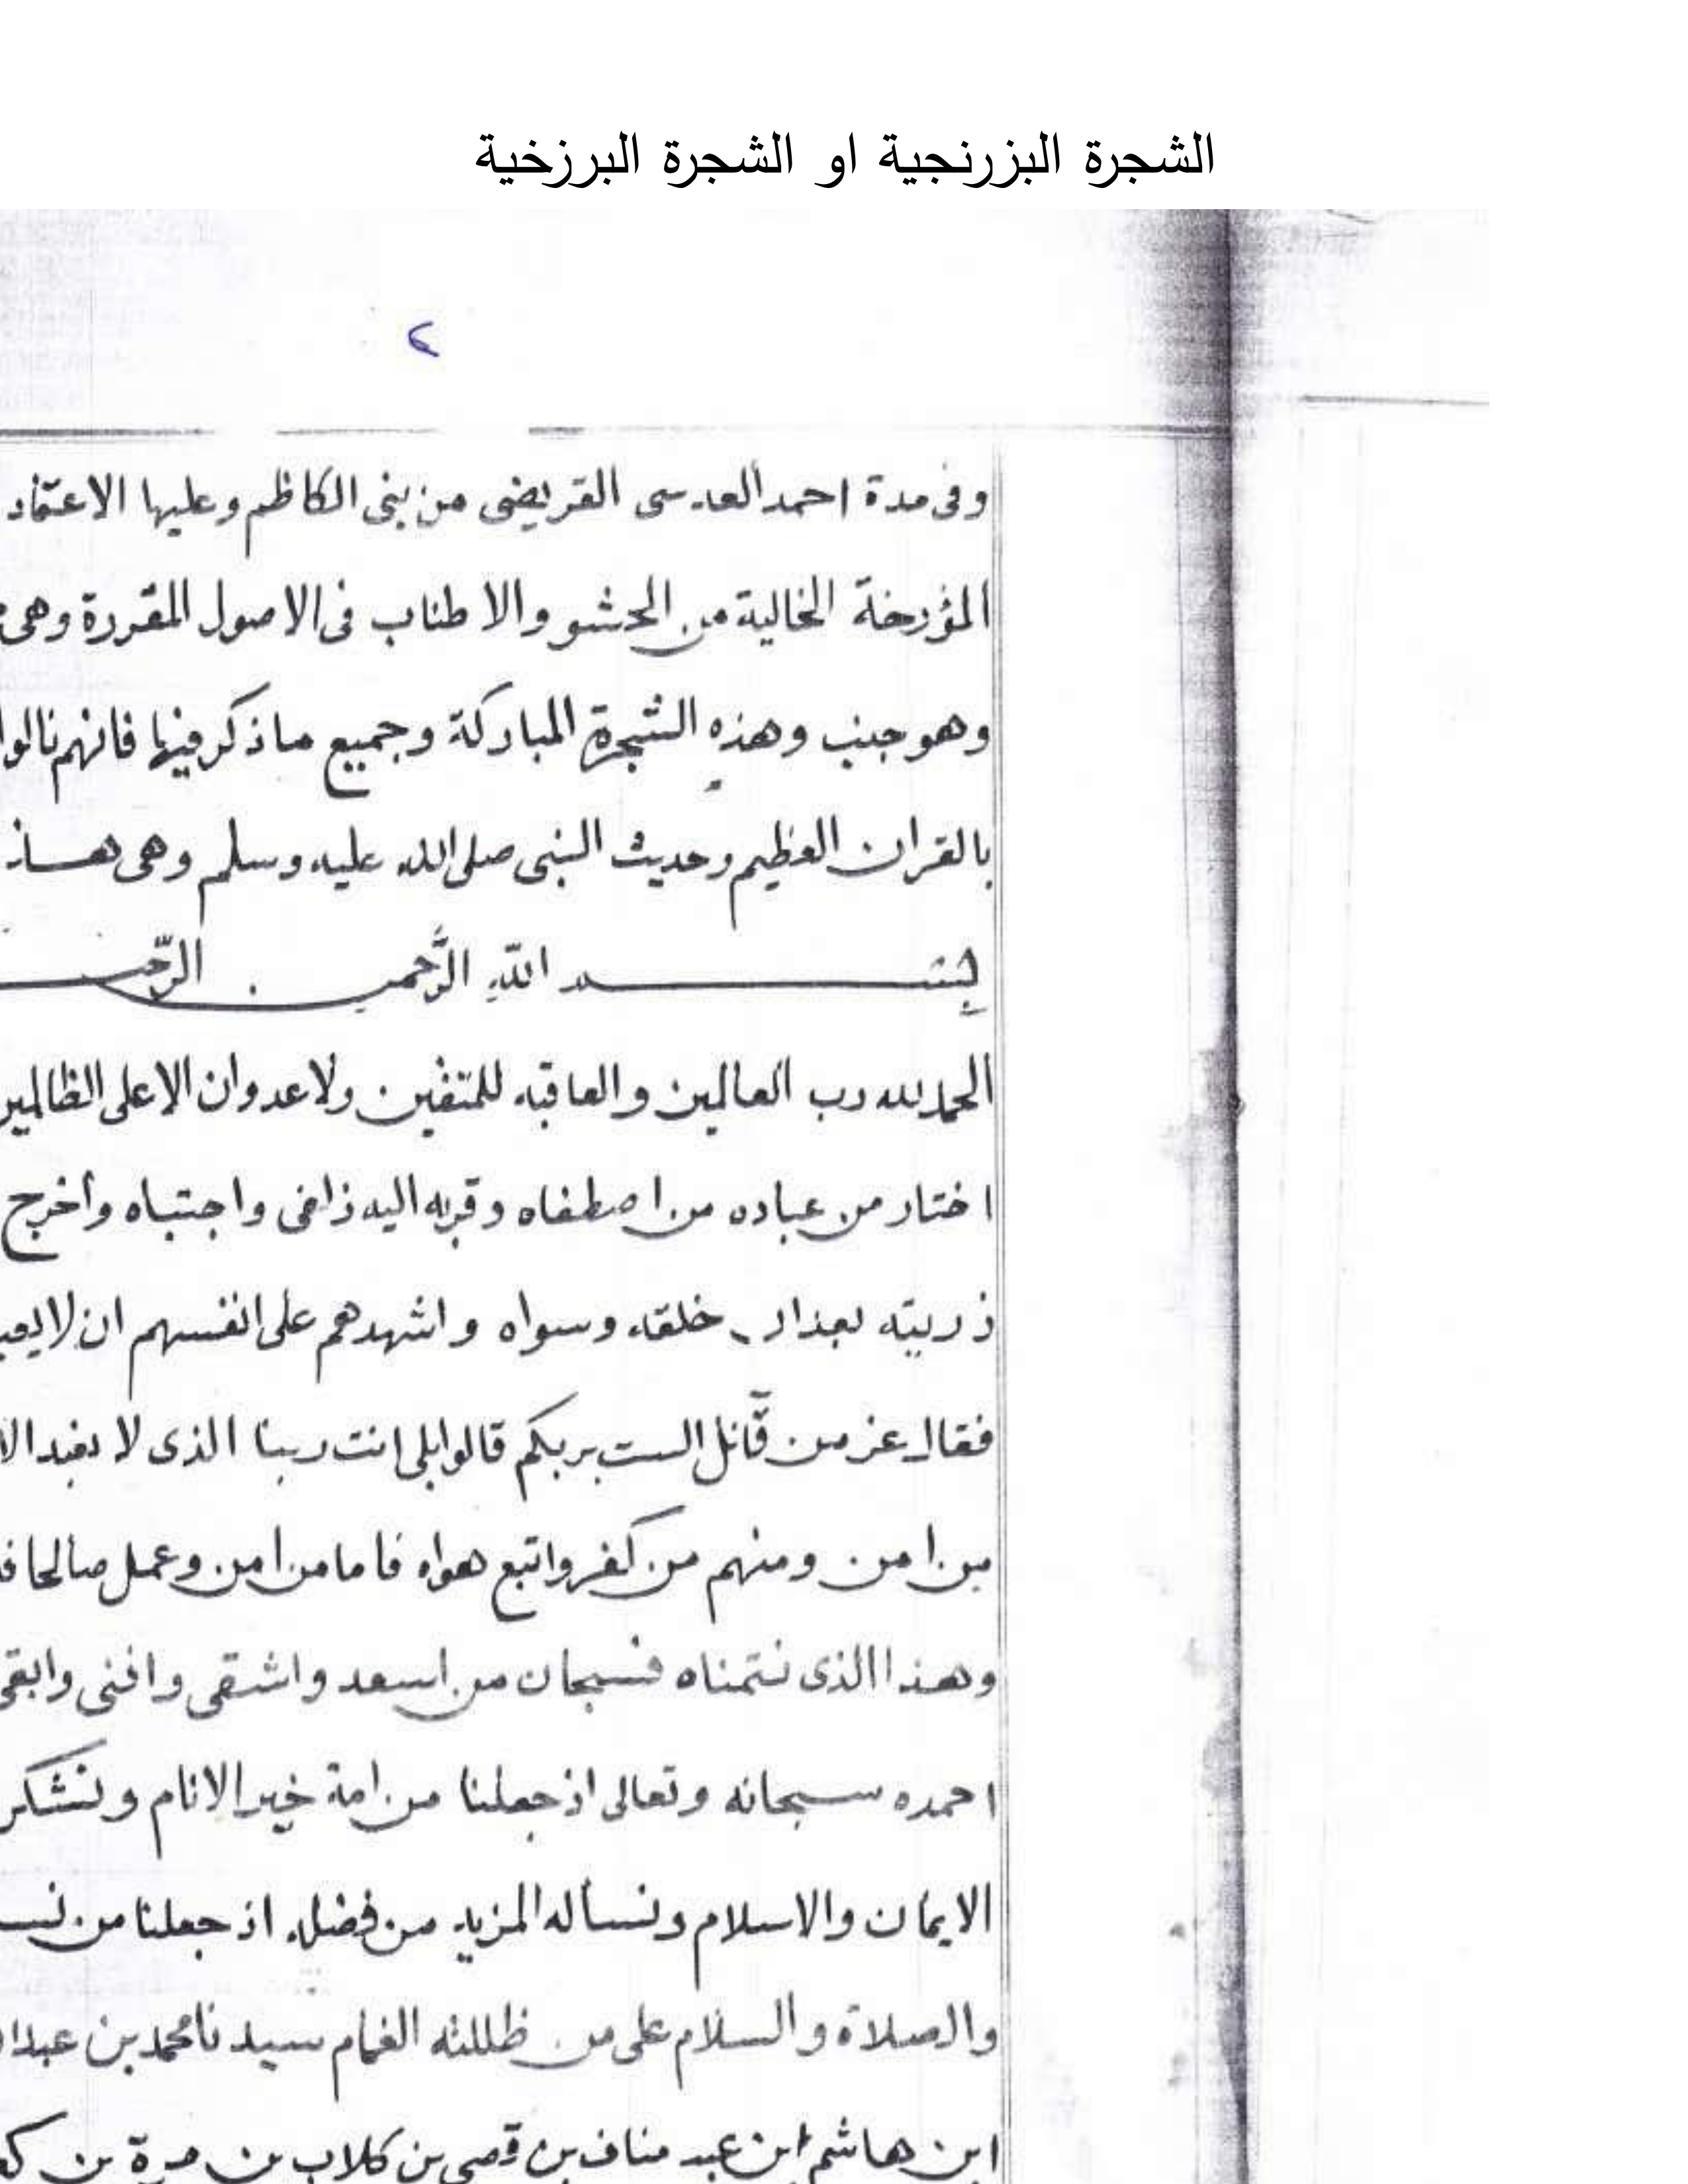 الشجرة البزرنجية او الشجرة البرزخية
٢
وفى مدة احمد العدسى القريضى من بنى الكاظم وعليها الاعتماد
المؤرخة الخالية من الحشو والاطناب فى الاصول المقررة وهى
وهو جنب وهذه الشجرة المباركة وجميع ماذكر فيها فانهم نالوا
بالقران العظيم وحديث النبى صلى الله عليه وسلم وهى هـــاذ
بِسـم اللّهِ الرَّحمن الرّحيـ
الحمد لله رب العالمين والعاقبه للمتقين ولاعدوان الاعلى الظالمين
اختار من عباده من اصطفاه وقربه اليه زلفى واجتباه وأخرج
ذريته بعدان خلقه وسواه واشهدهم على انفسهم ان لا
فقال عز من قآئل الست بربكم قالوا بلى انت ربنا الذى لا
من امن ومنهم من كفر واتبع هواه فاما من امن وعمل صالحا
وهذا الذى نتمناه فسبحان من اسعد واشقى وافنى وابقى
احمده سبحانه وتعالى اذ جعلنا من امة خير الانام ونشكر
الايمان والاسلام ونسأله المزيد من فضله اذ جعلنا من
والصلاة والسلام على من ظللته الغمام سيدنا محمد بن
ابن هاشم ابن عبد مناف بن قصى بن كلاب بن مرة بن